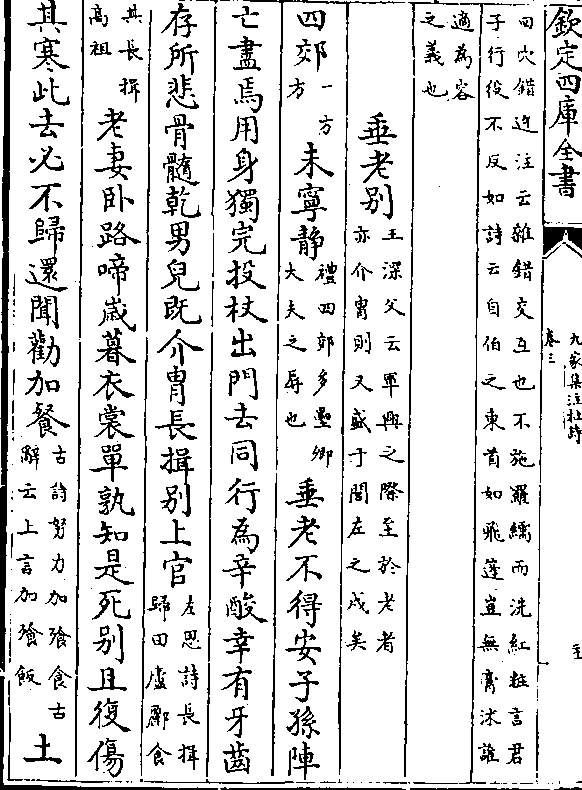 欽定四庫全書
九家集注杜詩
卷三
四穴錯迕注云雜錯交互也不施羅繻而洗紅粧言君
子行役不反如詩云自伯之東首如飛蓬豈無膏沐誰
適為容
之義也
垂老别
王深父云軍興之際至於老者
亦介胄則又盛于閭左之戍矣
四郊
一方
方
未寧静
禮四郊多壘卿
大夫之辱也
垂老不得安子孫陣
亡盡焉用身獨完投杖出門去同行為辛酸幸有牙齒
存所悲骨髓乾男兒既介胄長揖别上官
左思詩長揖
歸田廬酈食
其長揖
高祖
老妻卧路啼歲暮衣裳單孰知是死别且復傷
其寒此去必不歸還聞勸加餐
古詩努力加飱食古
辭云上言加飱飯
土